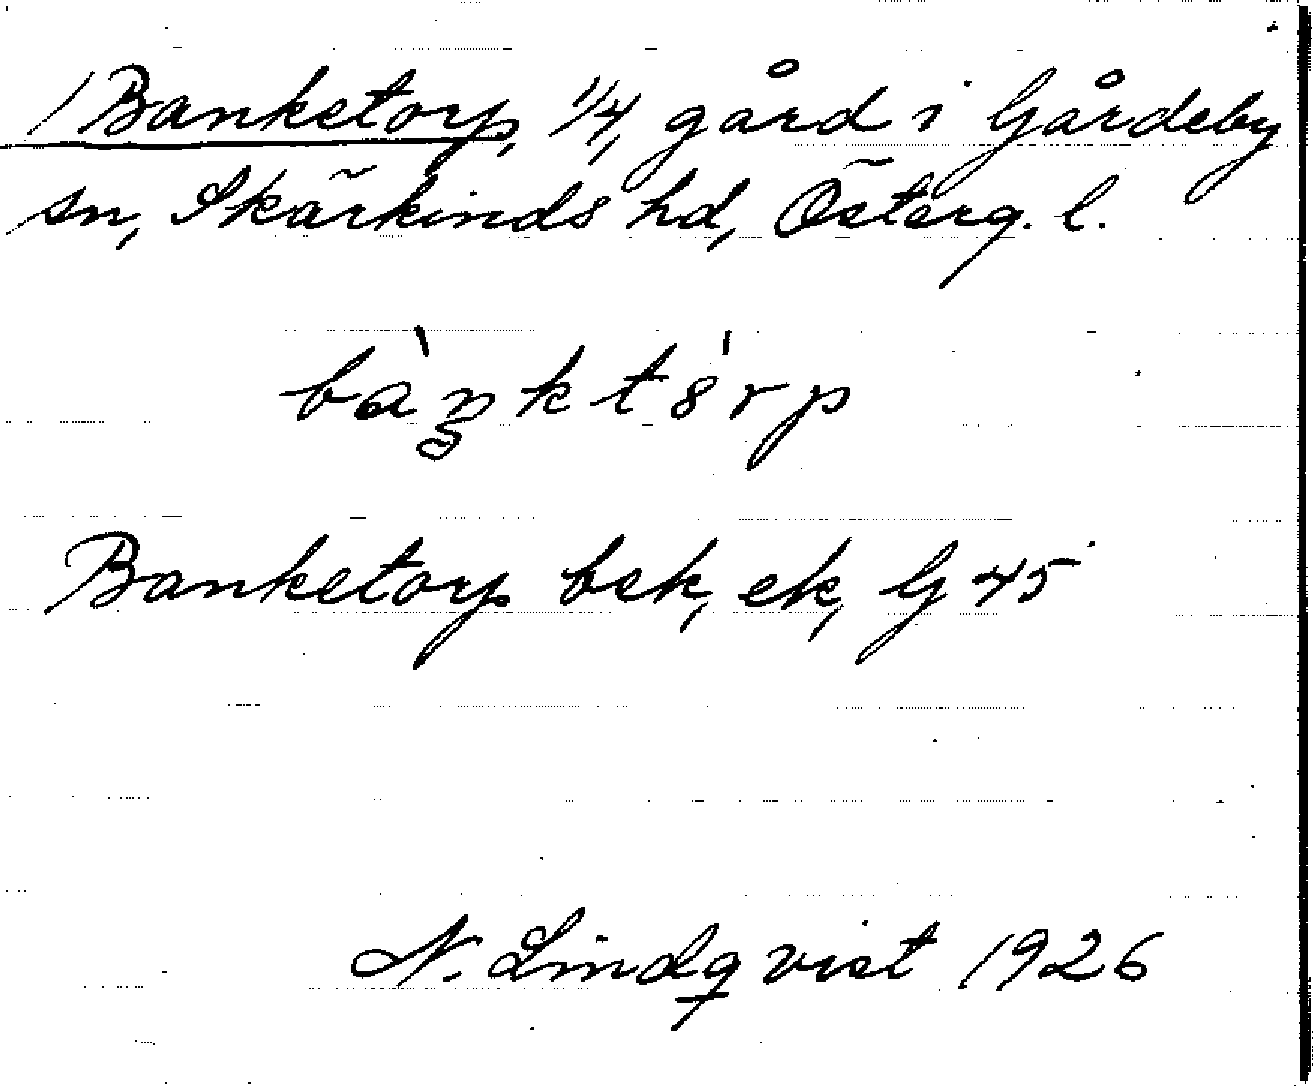 / Banketorp, 1/4, gård i Gårdeby
sn, Skärkinds hd, Österg. l.
bàŋktȣ́rp
Banketorp bek, ek, G 45
N. Lindqvist 1926